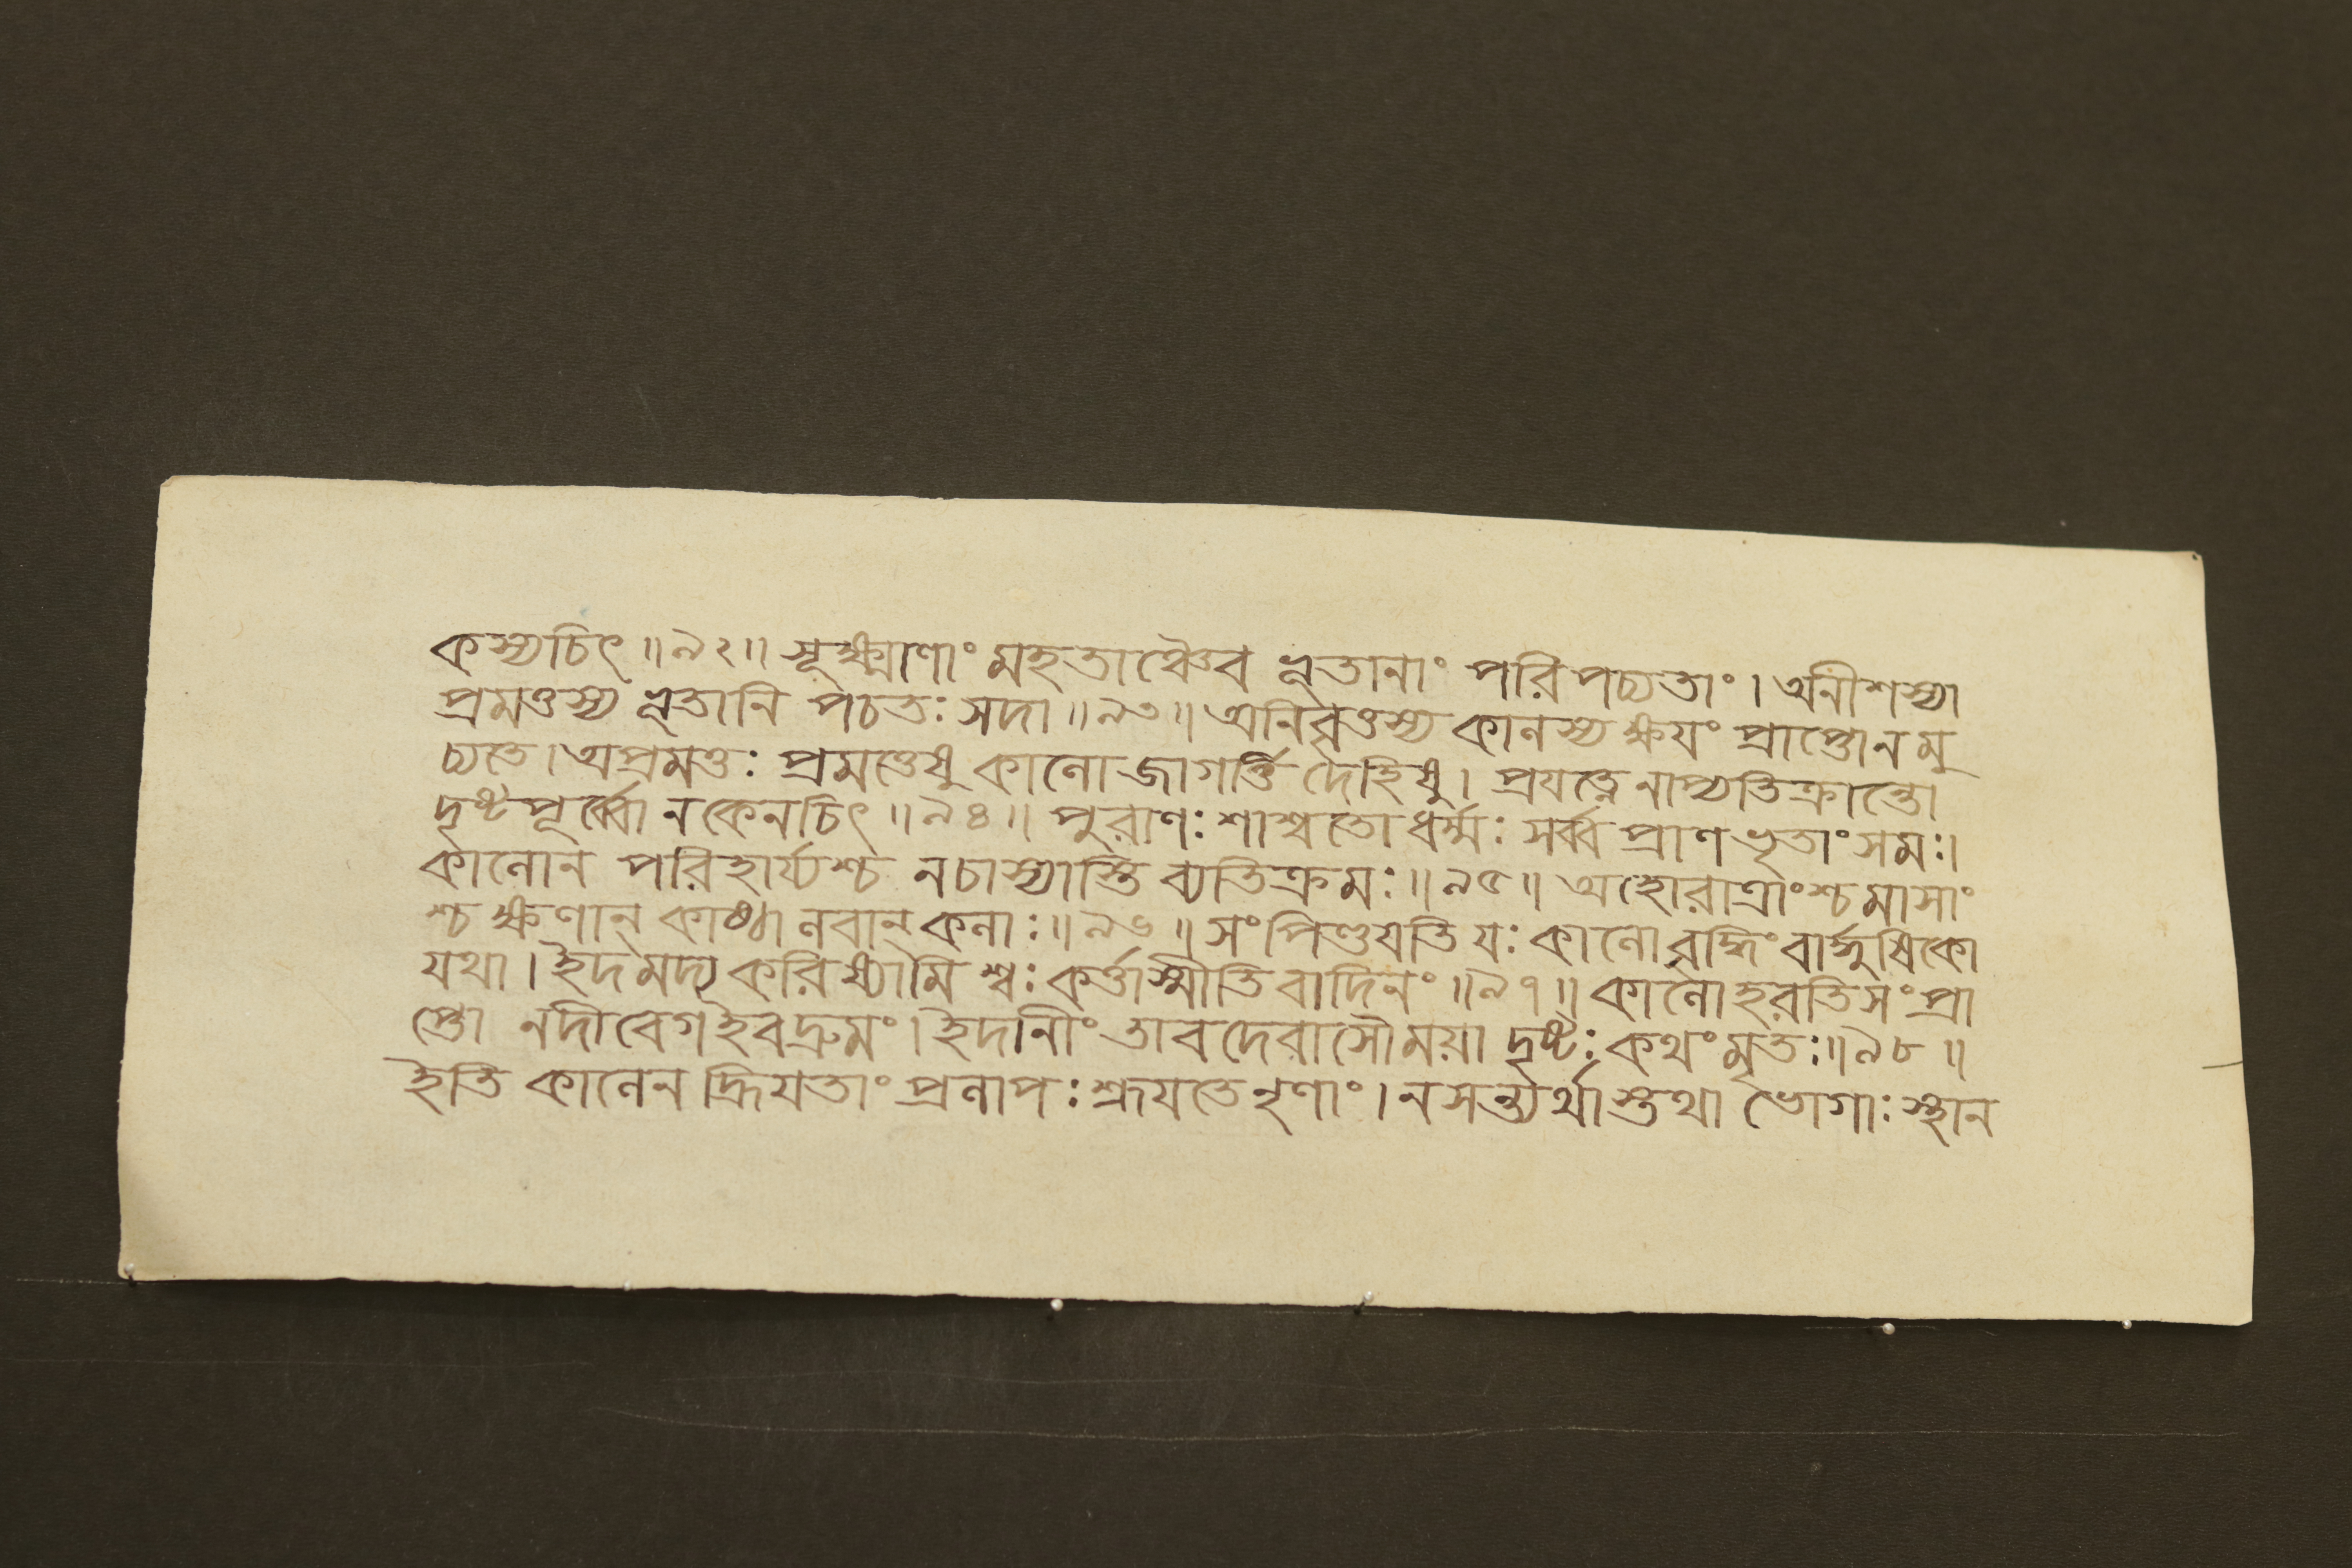 কস্যচিৎ ॥৯২॥ সূক্ষ্মাণাং মহতাঞ্চৈব ভূতানাং পরিপচ্যতাং। অনীশস্যা
প্রমত্তস্য ভূতানি পচতঃ সদা ॥৯৩॥ অনিবৃত্তস্য কালস্য ক্ষয়ং প্রাপ্তো ন মু
চ্যতে। অপ্রমত্তঃ প্রমত্তেষু কালো জাগর্ত্তি দেহিষু। প্রযত্নেনাপ্যতিক্রান্তো
দৃষ্টপূর্ব্বো ন কেনচিৎ ॥৯৪॥ পুরাণঃ শাশ্বতো ধর্ম্মঃ সর্ব্ব প্রাণভৃতাং সমঃ।
কালো ন পরিহার্য্যশ্চ ন চাস্যাস্তি ব্যতিক্রমঃ ॥৯৫॥ অহোরাত্রাংশ্চ মাসাং
শ্চ ক্ষণান্ কাষ্ঠা লবান্ কলাঃ ॥৯৬॥ সংপিণ্ডয়তি যঃ কালো বৃদ্ধিং বার্দ্ধুষিকো
যথা। ইদমদ্য করিষ্যামি শ্বঃ কর্ত্তাস্মীতি বাদিনং ॥৯৭॥ কালো হরতি সংপ্রা
প্তো নদীবেগ ইব দ্রুমং। ইদানীং তাবদেবাসৌ ময়া দৃষ্টঃ কথং মৃতঃ ॥৯৮॥
ইতি কালেন হ্রিয়তাং প্রলাপঃ শ্রূয়তে নৃণাং। ন সন্ত্যর্থাস্তথা ভোগাঃ স্থান